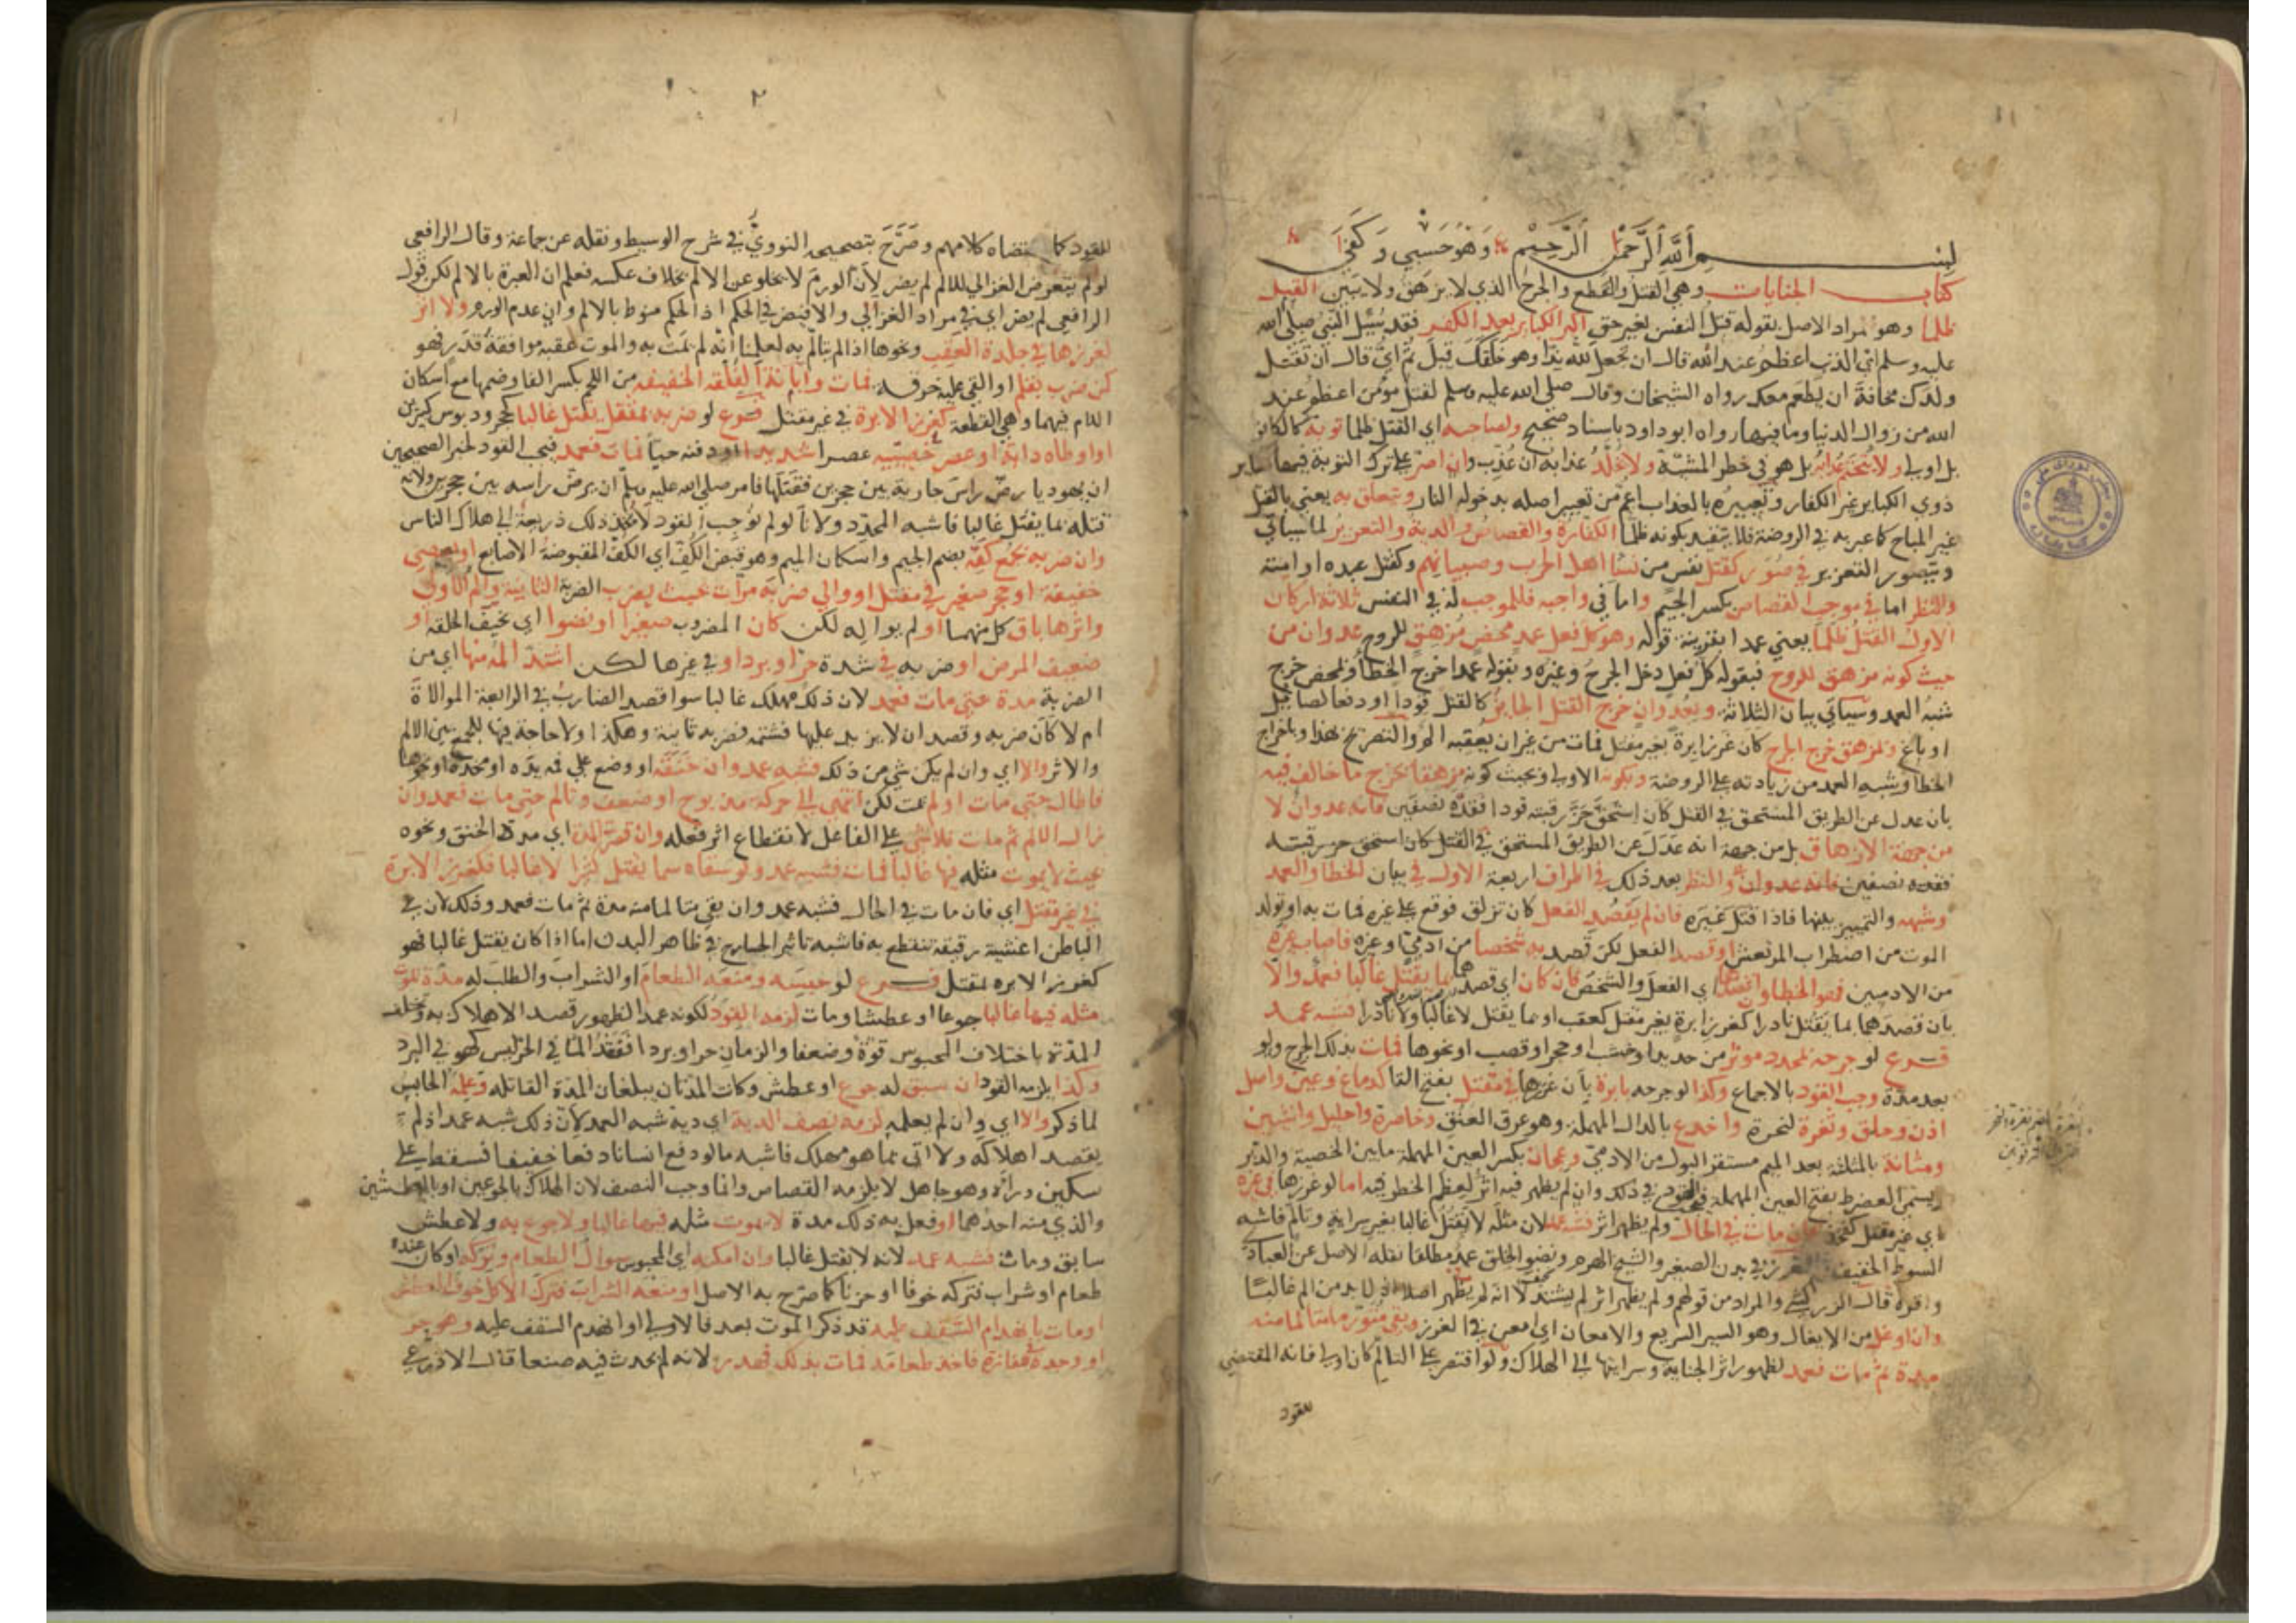 بسم الله الرحمن الرحيم وهو حسبي وكفى
كتاب الجنايات وهي القتل والقطع والجرح الذي لا يزهق ولا يبين القتل
ظلما وهو مراد الاصل بقوله قتل النفس بغير حق اكبر الكبائر بعد الكفر فقد سئل النبي صلى الله
عليه وسلم اي الذنب اعظم عند الله قال ان تجعل لله ندا وهو خلقك قيل ثم اي قال ان تقتل
ولدك مخافة ان يطعم معك رواه الشيخان وقال صلى الله عليه وسلم لقتل مؤمن اعظم عند
الله من زوال الدنيا وما فيها رواه ابو داود باسناد صحيح ولصاحبه اي القتل ظلما توبة كالكافر
بل اولى ولا يتحتم عذابه بل هو في خطر المشية ولا يخلد عذابه ان عذب وان اصر على ترك التوبة فيها كساير
ذوي الكباير غير الكفار وتعبيره بالعذاب اعم من تعبير اصله بدخوله النار ويتعلق به يعني بالقتل
غير المباح كما عبر به في الروضة فلا يتقيد بكونه ظلما الكفارة والقصاص والدية والتعزير لما سيأتي
ويتصور التعزير في صور كقتل نفس من نسا اهل الحرب وصبيانهم وكقتل عبده او امته
والنظر اما في موجب القصاص بكسر الجيم واما في واجبه فللموجب له في النفس ثلاثة اركان
الاول القتل ظلما يعني عمدا بقرينة قوله وهو كل فعل عمد محض مزهق للروح عدوان من
حيث كونه مزهق للروح فبقوله كل فعل دخل الجرح وغيره وبقوله عمدا خرج الخطأ وبمحض خرج
شبه العمد وسيأتي بيان الثلاثة وبعدوان خرج القتل الجايز كالقتل قودا او دفعا لصايل
او باغ وبمزهق خرج الجرح كان غرز ابرة بغير مقتل فمات من غير ان يعقبه الم والتصريح بهذا وباخراج
الخطا وشبه العمد من زيادته على الروضة وبكونه الاولى وبحيث كونه مزهقا خرج ما خالف فيه
بان عدل عن الطريق المستحق في القتل كان استحق حز رقبته قودا فقده نصفين فانه عدوان لا
من جهة الازهاق بل من جهة انه عدل عن الطريق المستحق في القتل كان استحق حز رقبته
فقده نصفين فانه عدوان والنظر بعد ذلك في اطراف اربعة الاول في بيان الخطا والعمد
وشبهه والتمييز بينها فاذا قتل غيره فان لم يقصد الفعل كان تزلق فوقع على غيره فمات به او تولد
الموت من اضطراب المرتعش او قصد الفعل لكن قصد به شخصا من ادمي او غيره فاصاب غيره
من الادميين فهو الخطا وان قصدهما اي الفعل والشخص فان كان اي قصدهما بما يقتل غالبا فعمد والا
بان قصدهما بما يقتل نادرا كغرز ابرة بغير مقتل كعقب او بما يقتل لا غالبا ولا نادرا فشبه عمد
فرع لو جرحه بمحدد موثر من حديد او خشب او حجر او قصب او نحوها فمات بذلك الجرح ولو
بعد مدة وجب القود بالاجماع وكذا لو جرحه بابرة بان غرزها في مقتل بفتح التا كدماغ وعين واصل
اذن وحلق وثغرة لنحرة واخدع بالدال المهملة وهو عرق العنق وخاصرة واحليل وانثيين
ومثانة بالمثلثة بعد الميم مستقر البول من الادمي وعجان بكسر العين المهملة ما بين الخصية والدبر
ويسمى العضرط بفتح العين المهملة فيجب القود في ذلك وان لم يظهر فيه اثر لعظم الخطر فيه اما لو غرزها في غيره
اي غير مقتل كفخذ فان مات في الحال ولم يظهر اثر فشبه عمد لان مثله لا يقتل غالبا بغير سراية وتألم فاشبه
السوط الخفيف والغرز في بدن الصغير والشيخ الهرم ونضو الخلق عمد مطلقا نقله الاصل عن العبادي
واقره قال الزركشي والمراد من قولهم ولم يظهر اثر لم يشتد لا انه لم يظهر اصلا اذ لا بد من الم غالبا
وان اوغل من الايغال وهو السير السريع والامعان اي امعن في الغرز وبقي متورما متالما منه
مدة ثم مات فعمد لظهور اثر الجناية وسرايتها الى الهلاك ولو اقتصر على التالم كان اولى فانه المقتضي
للقود
٢
للقود كما اقتضاه كلامهم وصرح بتصحيحه النووي في شرح الوسيط ونقله عن جماعة وقال الرافعي
لو لم يتعرض الغزالي للالم لم يضر لان الورم لا يخلو عن الالم بخلاف عكسه فعلم ان العبرة بالالم لكن قول
الرافعي لم يضر اي في مراد الغزالي والا فيضر في الحكم اذ الحكم منوط بالالم وان عدم الورم ولا اثر
لغرزها في جلدة العقب ونحوها اذا لم يتالم به لعلمنا انه لم يمت به والموت عقبه موافقة قدر فهو
كمن ضرب بقلم او القي عليه خرقة فمات وابانة الفلقة الخفيفة من اللحم بكسر الفا وضمها مع اسكان
اللام فيهما وهي القطعة كغرز الابرة في غير مقتل فرع لو ضربه بمثقل يقتل غالبا كحجر ودبوس كبيرين
او اوطاه دابة او عصر خصيتيه عصرا شديدا او دفنه حيا فمات فعمد فيجب القود لخبر الصحيحين
ان يهوديا رض راس جارية بين حجرين فقتلها فامر صلى الله عليه وسلم ان يرض راسه بين حجرين ولانه
قتله بما يقتل غالبا فاشبه المحدد ولانا لو لم نوجب القود لاتخذ ذلك ذريعة الى هلاك الناس
وان ضربه بجمع كفه بضم الجيم واسكان الميم وهو قبض الكف اي الكف المقبوضة الاصابع او بعصى
خفيفة او حجر صغير في مقتل او والى ضربه مرات بحيث يضرب الضربة الثانية والم الاولى
واثرها باق كل منهما او لم يواله لكن كان المضروب صغيرا او نضوا اي نحيف الخلقة او
ضعيف المرض او ضربه في شدة حر او برد او في غيرها لكن اشتد المه منها اي من
الضربة مدة حتى مات فعمد لان ذلك مهلك غالبا سوا قصد الضارب في الرابعة الموالاة
ام لا كان ضربه وقصد ان لا يزيد عليها فشتمه فضربه ثانية وهكذا ولا حاجة فيها للجمع بين الالم
والاثر والا اي وان لم يكن شي من ذلك فشبه عمد وان خنقه او وضع على فمه يده او مخدة او نحوها
فاطال حتى مات او لم يمت لكن انتهى الى حركة مذبوح او ضعف وتالم حتى مات فعمد وان
زال الالم ثم مات فلا شي على الفاعل لانقطاع اثر فعله وان قصر المدة اي مدة الخنق ونحوه
بحيث لا يموت مثله فيها غالبا فمات فشبه عمد ولو سقاه سما يقتل كثيرا لا غالبا فكغرز الابرة
في غير مقتل اي فان مات في الحال فشبه عمد وان بقي متالما منه مدة ثم مات فعمد وذلك لان في
الباطن اغشية رقيقة تنقطع به فاشبه تاثير الجارح في ظاهر البدن اما اذا كان يقتل غالبا فهو
كغرز الابرة بمقتل فرع لو حبسه ومنعه الطعام او الشراب والطلب له مدة يموت
مثله فيها غالبا جوعا او عطشا ومات لزمه القود لكونه عمدا لظهور قصد الاهلاك به وتختلف
المدة باختلاف المحبوس قوة وضعفا والزمان حرا وبردا ففقد الما في الحر ليس كهو في البرد
وكذا يلزمه القود ان سبق له جوع او عطش وكانت المدتان يبلغان المدة القاتلة وعلم الحابس
لما ذكر والا اي وان لم يعلمه لزمه نصف الدية اي دية شبه العمد لان ذلك شبه عمد اذ لم
يقصد اهلاكه ولا اتى بما هو مهلك فاشبه ما لو دفع انسانا دفعا خفيفا فسقط على
سكين وراه وهو جاهل لا يلزمه القصاص وانما وجب النصف لان الهلاك بالجوعين او بالعطشين
والذي منه احدهما او فعل به ذلك مدة لا يموت مثله فيها غالبا ولا جوع به ولا عطش
سابق ومات فشبه عمد لانه لا يقتل غالبا وان امكنه اي المحبوس سوال الطعام وتركه او كان عنده
طعام او شراب فتركه خوفا او حزنا كما صرح به الاصل او منعه الشراب فترك الاكل خوف العطش
او مات بانهدام السقف عليه قد ذكر الموت بعد فالاولى او انهدم السقف عليه وهو حر
او وجده بمفازة فاخذ طعامه فمات بذلك فهدر لانه لم يحدث فيه صنعا قال الاذرعي